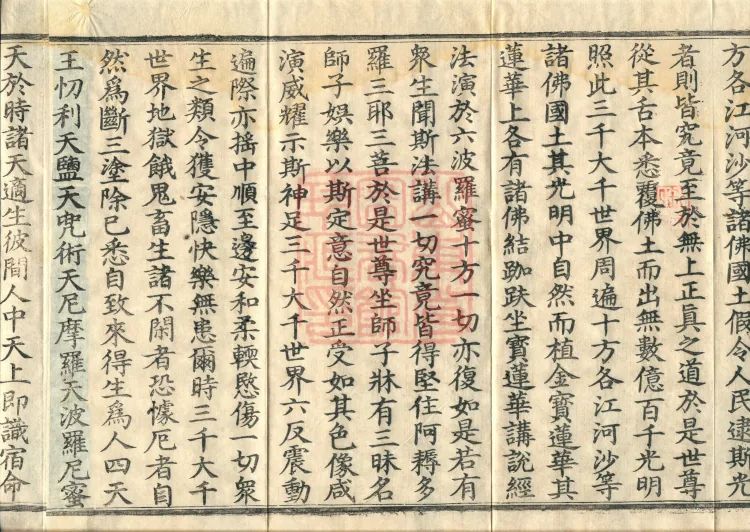 方各江河沙等諸佛國土假令人民逮斯光
者則皆究竟至於無上正真之道於是世尊
從其舌本悉覆佛土而出無數億百千光明
照此三千大千世界周遍十方各江河沙等
諸佛國土其光明中自然而植金寶蓮華其
蓮華上各有諸佛結跏趺坐寶蓮華講說經
法演於六波羅蜜十方一切亦復如是若有
衆生聞斯法講一切究竟皆得堅住阿耨多
羅三耶三菩於是世尊坐師子牀有三昧名
師子娛樂以斯定意自然正受如其色像咸
演威耀示斯神足三千大千世界六反震動
遍際亦搖中順至邊安和柔輭愍傷一切衆
生之類令獲安隱快樂無患爾時三千大千
世界地獄餓鬼畜生諸不閑者恐懅厄者自
然爲斷三塗除已悉自致來得生爲人四天
王忉利天鹽天兜術天尼摩羅天波羅尼蜜
天於時諸天適生彼間人中天上即識宿命